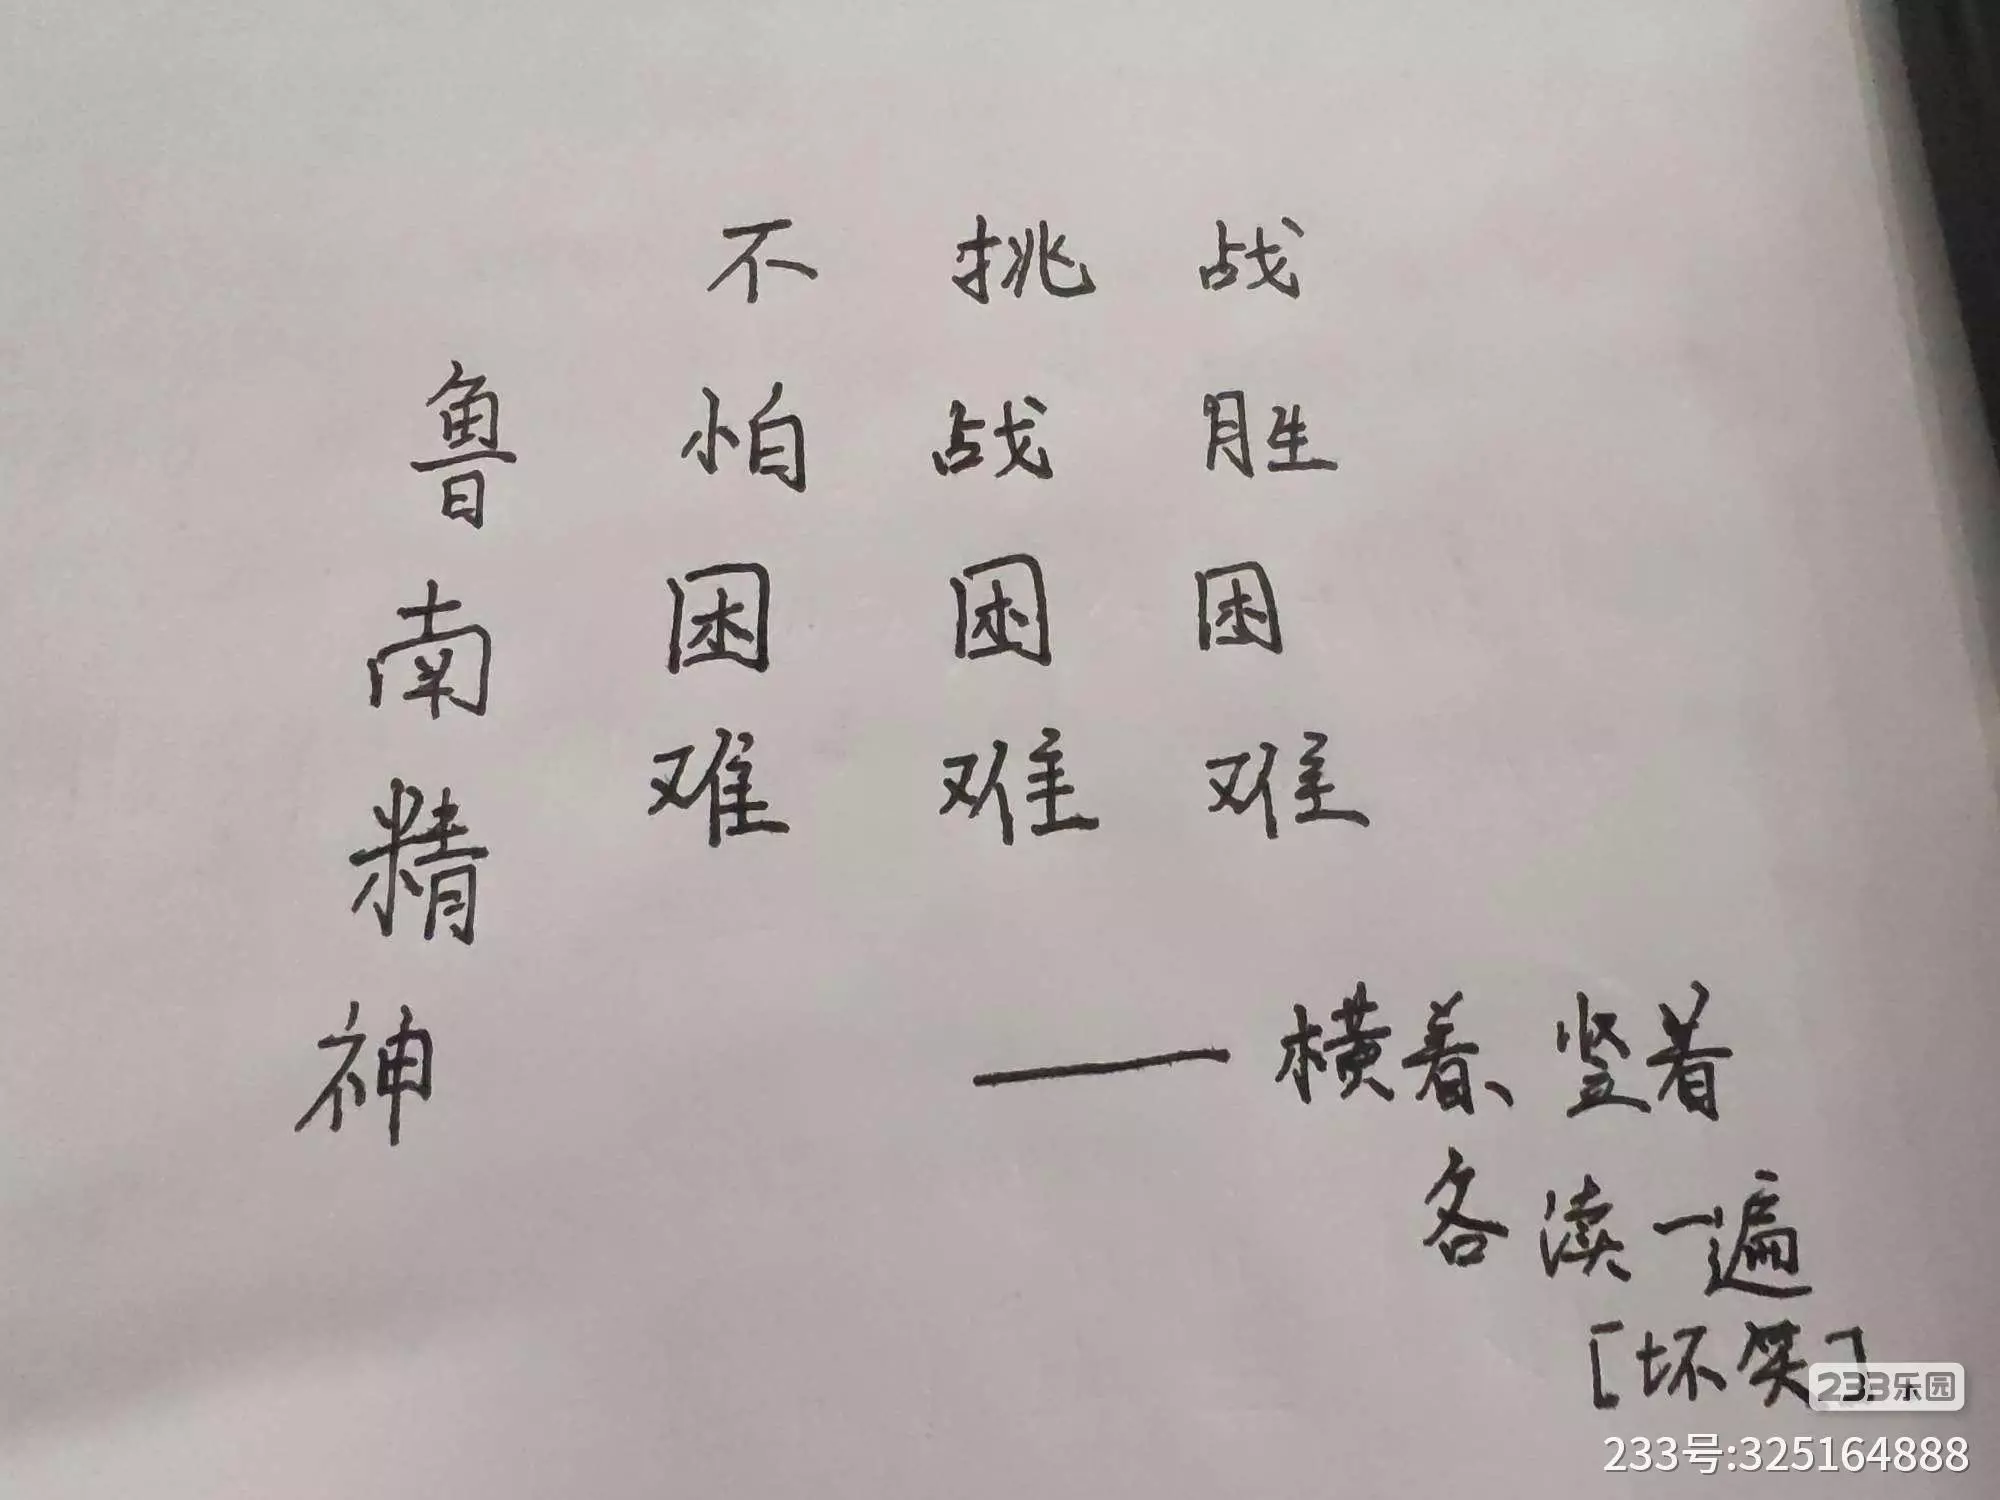 鲁南精神
不怕困难
挑战困难
战胜困难
——横着、竖着
各读一遍
[坏笑]
233乐园
233号:325164888